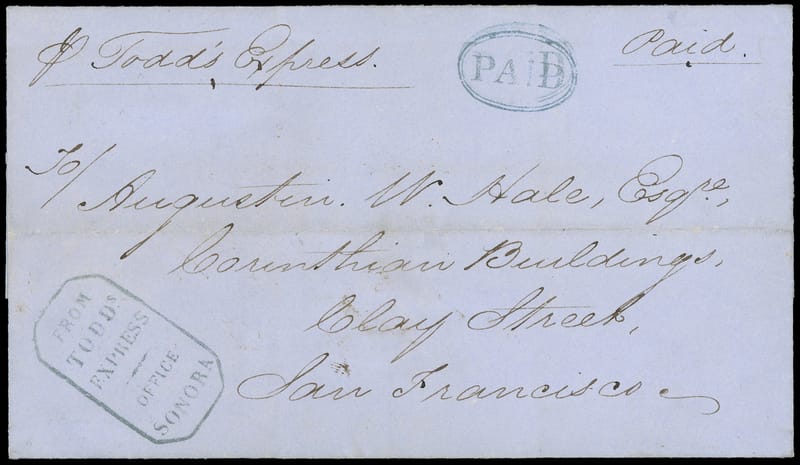 ℘ Todd's Express.
PAID
Paid.
To/
Augustin. W. Hale, Esqre,
Corinthian Buildings,
Clay Street,
San Francisco
FROM
TODDS
EXPRESS
OFFICE
SONORA